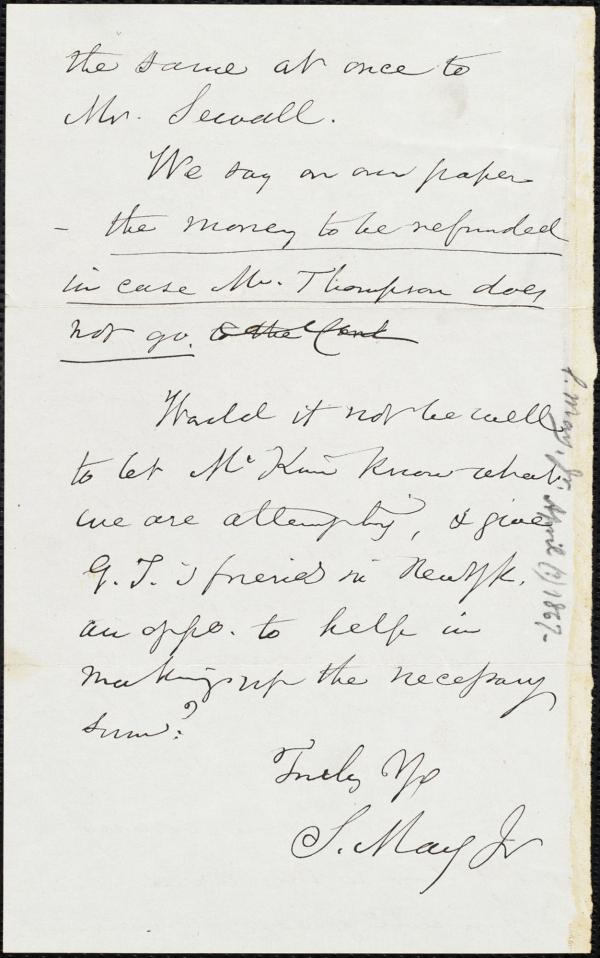 the same at once to
Mr. Sewall.
We say on our paper
- the money to be refunded
in case Mr. Thompson does
not go. to the Cont
Would it not be well
to let McKim know what
we are attempting, & give
G. T.'s friends in New Yk.
an oppo. to help in
making up the necessary
sum?
Truly Yrs
S. May Jr
S. May, Jr. April (?) 1867-